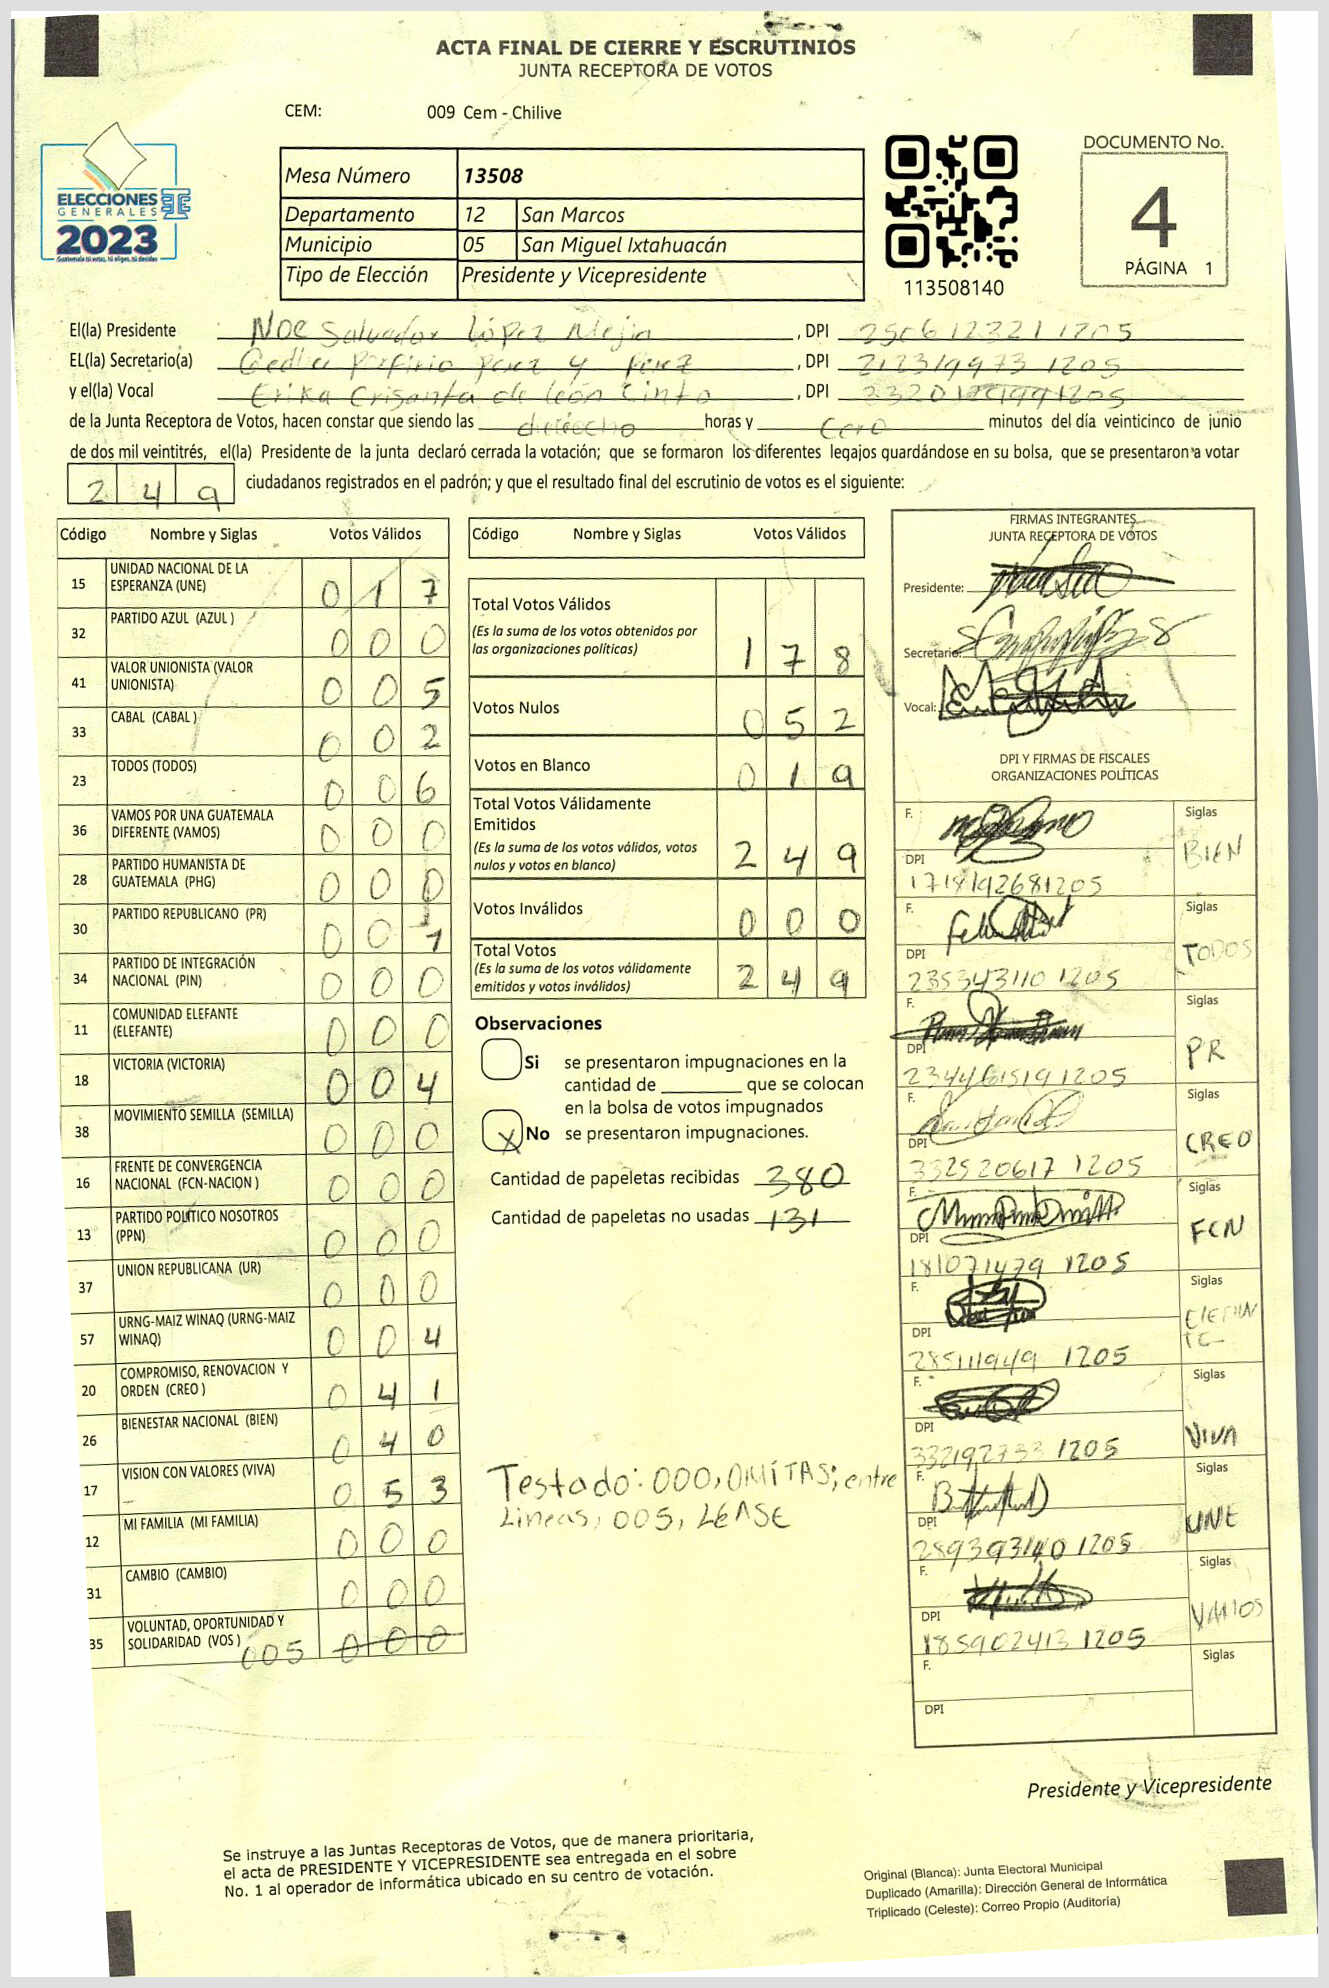 ACTA FINAL DE CIERRE Y ESCRUTINIOS
JUNTA RECEPTORA DE VOTOS
CEM: 009 Cem - Chilive
ELECCIONES
GENERALES
2023
Guatemala tú votas, tú eliges, tú decides
Mesa Número 13508
Departamento 12 San Marcos
Municipio 05 San Miguel Ixtahuacán
Tipo de Elección Presidente y Vicepresidente
113508140
DOCUMENTO No.
4
PÁGINA 1
El(la) Presidente Noe Salvador López Mejia, DPI 2506123211205
EL(la) Secretario(a) Porfirio Perez y Perez, DPI 212319973 1205
y el(la) Vocal Erika Crisanta de león Cinto, DPI
de la Junta Receptora de Votos, hacen constar que siendo las dieciocho horas y cero minutos del día veinticinco de junio
de dos mil veintitrés, el(la) Presidente de la junta declaró cerrada la votación; que se formaron los diferentes legajos guardándose en su bolsa, que se presentaron a votar
249 ciudadanos registrados en el padrón; y que el resultado final del escrutinio de votos es el siguiente:
Código Nombre y Siglas Votos Válidos
15 UNIDAD NACIONAL DE LA ESPERANZA (UNE) 0 1 7
32 PARTIDO AZUL (AZUL ) 0 0 0
41 VALOR UNIONISTA (VALOR UNIONISTA) 0 0 5
33 CABAL (CABAL ) 0 0 2
23 TODOS (TODOS) 0 0 6
36 VAMOS POR UNA GUATEMALA DIFERENTE (VAMOS) 0 0 0
28 PARTIDO HUMANISTA DE GUATEMALA (PHG) 0 0 0
30 PARTIDO REPUBLICANO (PR) 0 0 1
34 PARTIDO DE INTEGRACIÓN NACIONAL (PIN) 0 0 0
11 COMUNIDAD ELEFANTE (ELEFANTE) 0 0 0
18 VICTORIA (VICTORIA) 0 0 4
38 MOVIMIENTO SEMILLA (SEMILLA) 0 0 0
16 FRENTE DE CONVERGENCIA NACIONAL (FCN-NACION ) 0 0 0
13 PARTIDO POLITICO NOSOTROS (PPN) 0 0 0
37 UNION REPUBLICANA (UR) 0 0 0
57 URNG-MAIZ WINAQ (URNG-MAIZ WINAQ) 0 0 4
20 COMPROMISO, RENOVACION Y ORDEN (CREO ) 0 4 1
26 BIENESTAR NACIONAL (BIEN) 0 4 0
17 VISION CON VALORES (VIVA) 0 5 3
12 MI FAMILIA (MI FAMILIA) 0 0 0
31 CAMBIO (CAMBIO) 0 0 0
35 VOLUNTAD, OPORTUNIDAD Y SOLIDARIDAD (VOS ) 005 0 0 0
Código Nombre y Siglas Votos Válidos
Total Votos Válidos 1 7 8
(Es la suma de los votos obtenidos por
las organizaciones políticas)
Votos Nulos 0 5 2
Votos en Blanco 0 1 9
Total Votos Válidamente
Emitidos 2 4 9
(Es la suma de los votos válidos, votos
nulos y votos en blanco)
Votos Inválidos 0 0 0
Total Votos 2 4 9
(Es la suma de los votos válidamente
emitidos y votos inválidos)
Observaciones
Si se presentaron impugnaciones en la
cantidad de ________ que se colocan
en la bolsa de votos impugnados
X No se presentaron impugnaciones.
Cantidad de papeletas recibidas 380
Cantidad de papeletas no usadas 131
Testado: 000, OMITAS; entre
Lineas, 005, LEASE
FIRMAS INTEGRANTES
JUNTA RECEPTORA DE VOTOS
Presidente:
Secretario:
Vocal:
DPI Y FIRMAS DE FISCALES
ORGANIZACIONES POLÍTICAS
F. Siglas BIEN
DPI 1718192681205
F. Siglas TODOS
DPI 235343110 1205
F. Siglas PR
DPI
F. Siglas CREO
DPI 332520617 1205
F. Siglas FCN
DPI 181071479 1205
F. Siglas ELEFANTE
DPI 285111949 1205
F. Siglas VIVA
DPI 332192733 1205
F. Siglas UNE
DPI 289393140 1205
F. Siglas VAMOS
DPI 185902413 1205
F. Siglas
DPI
Presidente y Vicepresidente
Se instruye a las Juntas Receptoras de Votos, que de manera prioritaria,
el acta de PRESIDENTE Y VICEPRESIDENTE sea entregada en el sobre
No. 1 al operador de informática ubicado en su centro de votación.
Original (Blanca): Junta Electoral Municipal
Duplicado (Amarilla): Dirección General de Informática
Triplicado (Celeste): Correo Propio (Auditoría)